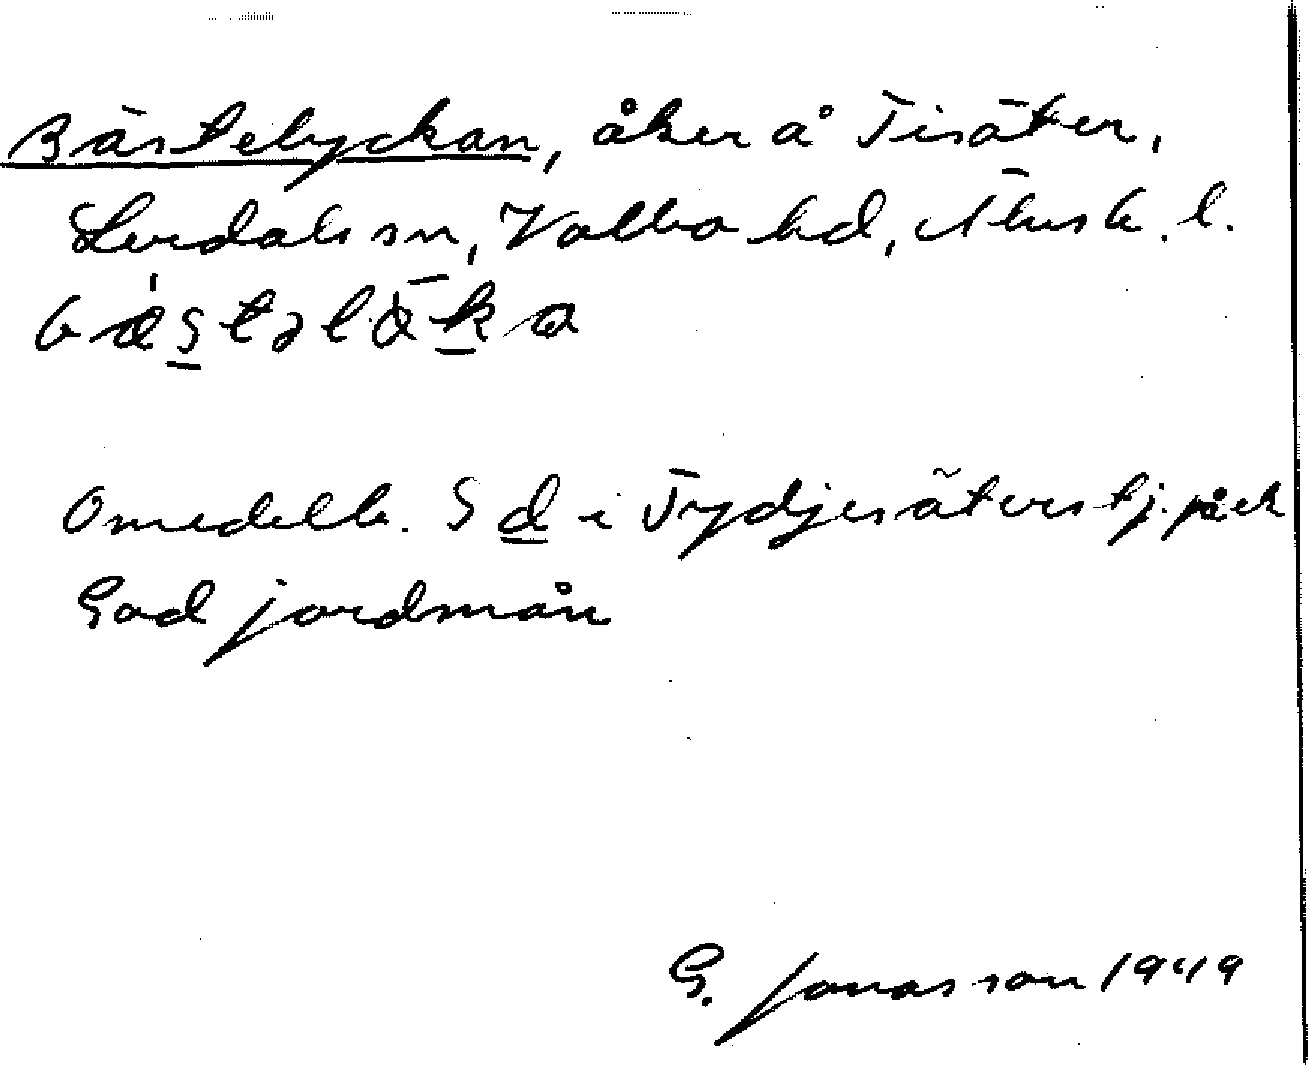 Bästelyckan, åker å Tisäter,
Lerdals sn, Valbo hd, Älvsb. l.
bæstəlɵka
Omedelb. S d i Tydjesäters tj. på ek
God jordmån
G. Jonasson 1949